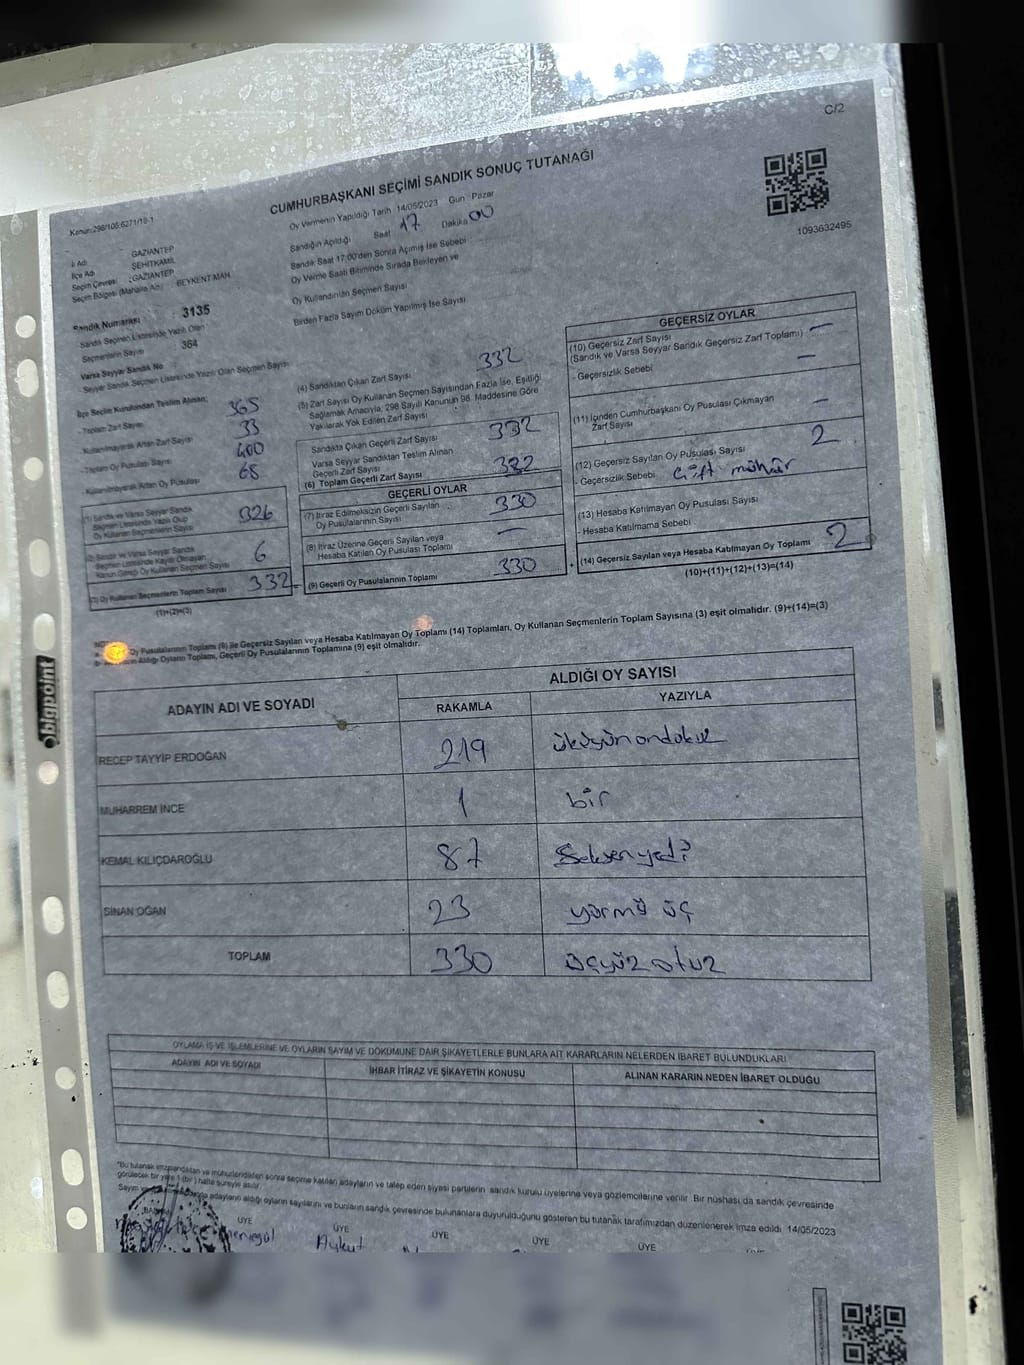 C/2
CUMHURBAŞKANI SEÇİMİ SANDIK SONUÇ TUTANAĞI
1093632495
Kanun:298/106,6271/18-1
Oy Vermenin Yapıldığı Tarih 14/05/2023 Gün : Pazar
Sandığın Açıldığı Saat 17 Dakika 00
Sandık Saat 17:00'den Sonra Açılmış İse Sebebi
Oy Verme Saati Bitiminde Sırada Bekleyen ve
Oy Kullandırılan Seçmen Sayısı
Birden Fazla Sayım Döküm Yapılmış İse Sayısı
İl Adı : GAZİANTEP
İlçe Adı : ŞEHİTKAMİL
Seçim Çevresi : GAZİANTEP
Seçim Bölgesi (Mahalle Adı) : BEYKENT MAH.
Sandık Numarası 3135
Sandık Seçmen Listesinde Yazılı Olan
Seçmenlerin Sayısı 364
Varsa Seyyar Sandık No
Seyyar Sandık Seçmen Listesinde Yazılı Olan Seçmen Sayısı
İlçe Seçim Kurulundan Teslim Alınan;
- Toplam Zarf Sayısı 365
- Kullanılmayarak Artan Zarf Sayısı 33
- Toplam Oy Pusulası Sayısı 400
- Kullanılmayarak Artan Oy Pusulası 68
(1) Sandık ve Varsa Seyyar Sandık
Seçmen Listesinde Yazılı Olup
Oy Kullanan Seçmenlerin Sayısı 326
(2) Sandık ve Varsa Seyyar Sandık
Seçmen Listesinde Kayıtlı Olmayan
Kanun Gereği Oy Kullanan Seçmen Sayısı 6
(3) Oy Kullanan Seçmenlerin Toplam Sayısı 332
(1)+(2)=(3)
(4) Sandıktan Çıkan Zarf Sayısı 332
(5) Zarf Sayısı Oy Kullanan Seçmen Sayısından Fazla İse, Eşitliği
Sağlamak Amacıyla, 298 Sayılı Kanunun 98. Maddesine Göre
Yakılarak Yok Edilen Zarf Sayısı
Sandıkta Çıkan Geçerli Zarf Sayısı 332
Varsa Seyyar Sandıktan Teslim Alınan
Geçerli Zarf Sayısı
(6) Toplam Geçerli Zarf Sayısı 332
GEÇERLİ OYLAR
(7) İtiraz Edilmeksizin Geçerli Sayılan
Oy Pusulalarının Sayısı 330
(8) İtiraz Üzerine Geçerli Sayılan veya
Hesaba Katılan Oy Pusulası Toplamı —
(9) Geçerli Oy Pusulalarının Toplamı 330
GEÇERSİZ OYLAR
(10) Geçersiz Zarf Sayısı
(Sandık ve Varsa Seyyar Sandık Geçersiz Zarf Toplamı) —
- Geçersizlik Sebebi —
(11) İçinden Cumhurbaşkanı Oy Pusulası Çıkmayan
Zarf Sayısı —
(12) Geçersiz Sayılan Oy Pusulası Sayısı 2
- Geçersizlik Sebebi Çift mühür
(13) Hesaba Katılmayan Oy Pusulası Sayısı
- Hesaba Katılmama Sebebi
(14) Geçersiz Sayılan veya Hesaba Katılmayan Oy Toplamı 2
(10)+(11)+(12)+(13)=(14)
Oy Pusulalarının Toplamı (9) ile Geçersiz Sayılan veya Hesaba Katılmayan Oy Toplamı (14) Toplamları, Oy Kullanan Seçmenlerin Toplam Sayısına (3) eşit olmalıdır. (9)+(14)=(3)
Aldığı Oyların Toplamı, Geçerli Oy Pusulalarının Toplamına (9) eşit olmalıdır.
ADAYIN ADI VE SOYADI
ALDIĞI OY SAYISI
RAKAMLA YAZIYLA
RECEP TAYYİP ERDOĞAN 219 iküyüzondokuz
MUHARREM İNCE 1 bir
KEMAL KILIÇDAROĞLU 87 Seksenyedi
SİNAN OĞAN 23 yürmü üç
TOPLAM 330 üçyüz otuz
OYLAMA İŞ VE İŞLEMLERİNE VE OYLARIN SAYIM VE DÖKÜMÜNE DAİR ŞİKAYETLERLE BUNLARA AİT KARARLARIN NELERDEN İBARET BULUNDUKLARI
ADAYIN ADI VE SOYADI İHBAR İTİRAZ VE ŞİKAYETİN KONUSU ALINAN KARARIN NEDEN İBARET OLDUĞU
*Bu tutanak imzalandıktan ve mühürlendikten sonra seçime katılan adayların ve talep eden siyasi partilerin sandık kurulu üyelerine veya gözlemcilerine verilir. Bir nüshası da sandık çevresinde
görülecek bir yere 1 (bir) hafta süreyle asılır.
adayların aldığı oyların sayılarını ve bunların sandık çevresinde bulunanlara duyurulduğunu gösteren bu tutanak tarafımızdan düzenlenerek imza edildi. 14/05/2023
BAŞKAN ÜYE ÜYE ÜYE ÜYE ÜYE
Aykut
bigpoint